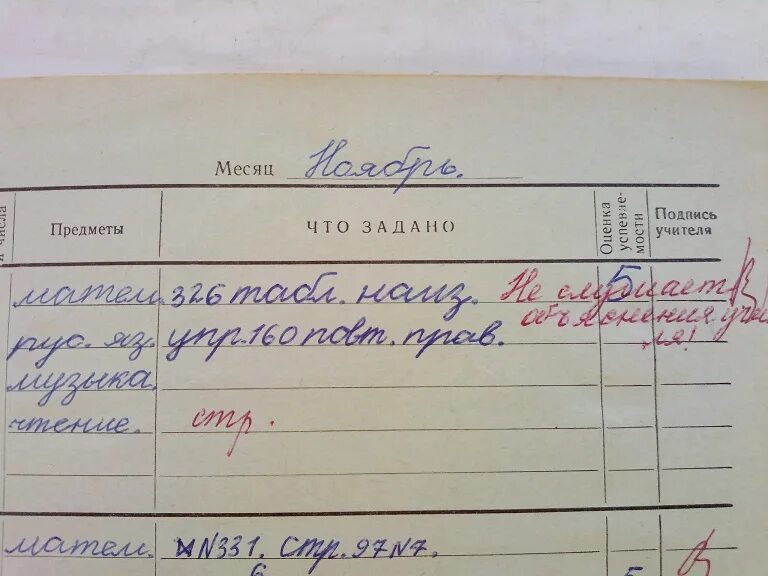 Месяц Ноябрь.
и числа Предметы ЧТО ЗАДАНО Оценка успевае-мости Подпись учителя
матем. 326 табл. наиз. 5 Не слушает
рус. яз. упр. 160 повт. прав. объяснения учи
теля!
музыка.
чтение. стр.
матем. N331. стр. 97 N7.
6 5